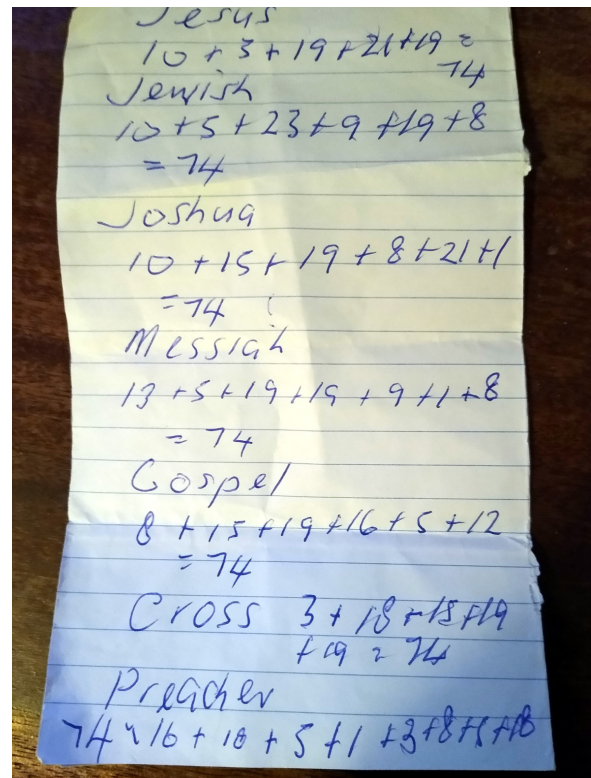 Jesus
10 + 3 + 19 + 21 + 19 =
74
Jewish
10 + 5 + 23 + 9 + 19 + 8
= 74
Joshua
10 + 15 + 19 + 8 + 21 + 1
= 74
Messiah
13 + 5 + 19 + 19 + 9 + 1 + 8
= 74
Gospel
8 + 15 + 19 + 16 + 5 + 12
= 74
Cross 3 + 18 + 15 + 19
+ 19 = 74
Preacher
74 = 16 + 18 + 5 + 1 + 3 + 8 + 5 + 18